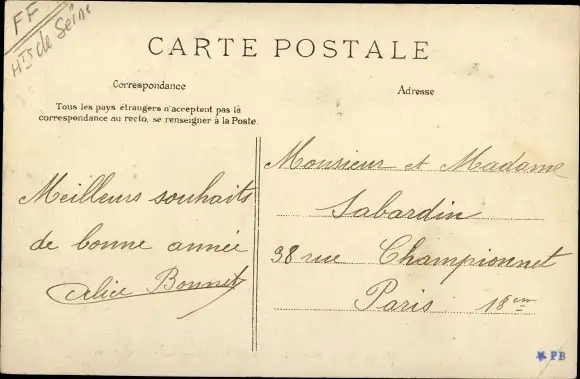 FF
Hts de Seine
CARTE POSTALE
Correspondance
Adresse
Tous les pays étrangers n'acceptent pas la
correspondance au recto, se renseigner à la Poste.
Meilleurs souhaits
de bonne année
Alice Bonnet
Monsieur et Madame
Sabardin
38 rue Championnet
Paris 18em
PB